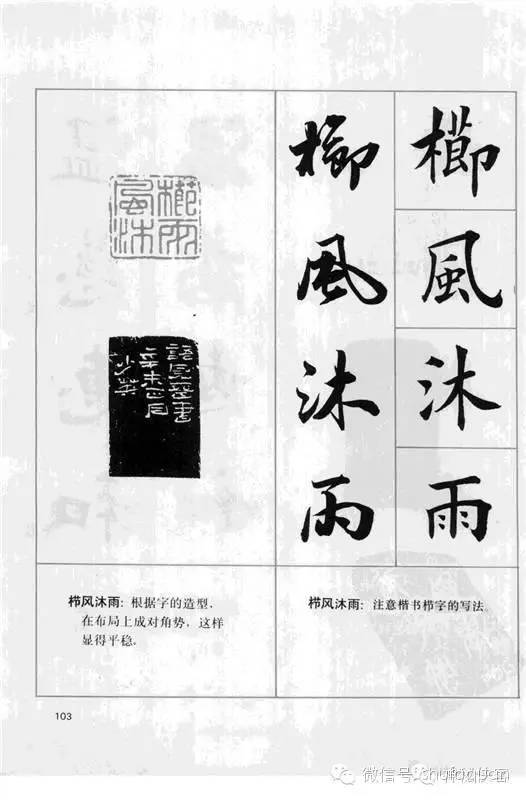 櫛
風
沐
雨
櫛
風
沐
雨
櫛雨
風沐
辛未
栉风沐雨：根据字的造型，
在布局上成对角势，这样
显得平稳。
栉风沐雨：注意楷书栉字的写法。
103
微信号